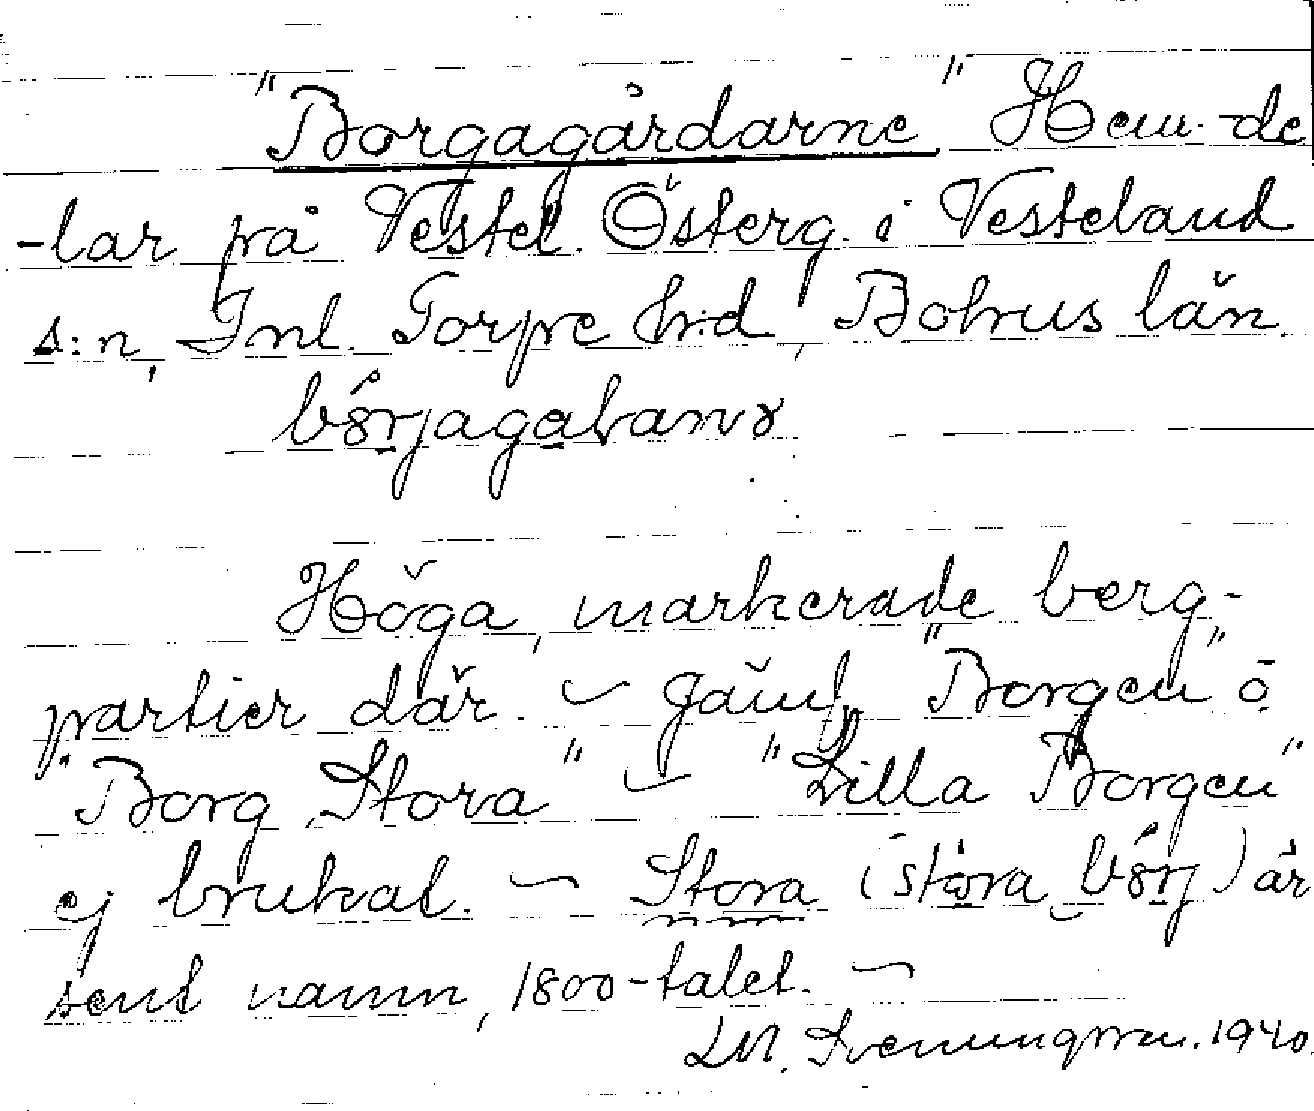 "Borgagårdarne" Hem.-de
-lar på Vestel. Österg. i Vesteland
s:n, Inl. Torpe h:d, Bohus län.
Höga, markerade berg-
partier där. – Jämf. "Borgen" o.
"Borg Stora" – "Lilla Borgen"
ej brukat. – Stora (stora bórj) är
sent namn, 1800-talet. –
LM. Svenungsson. 1940.